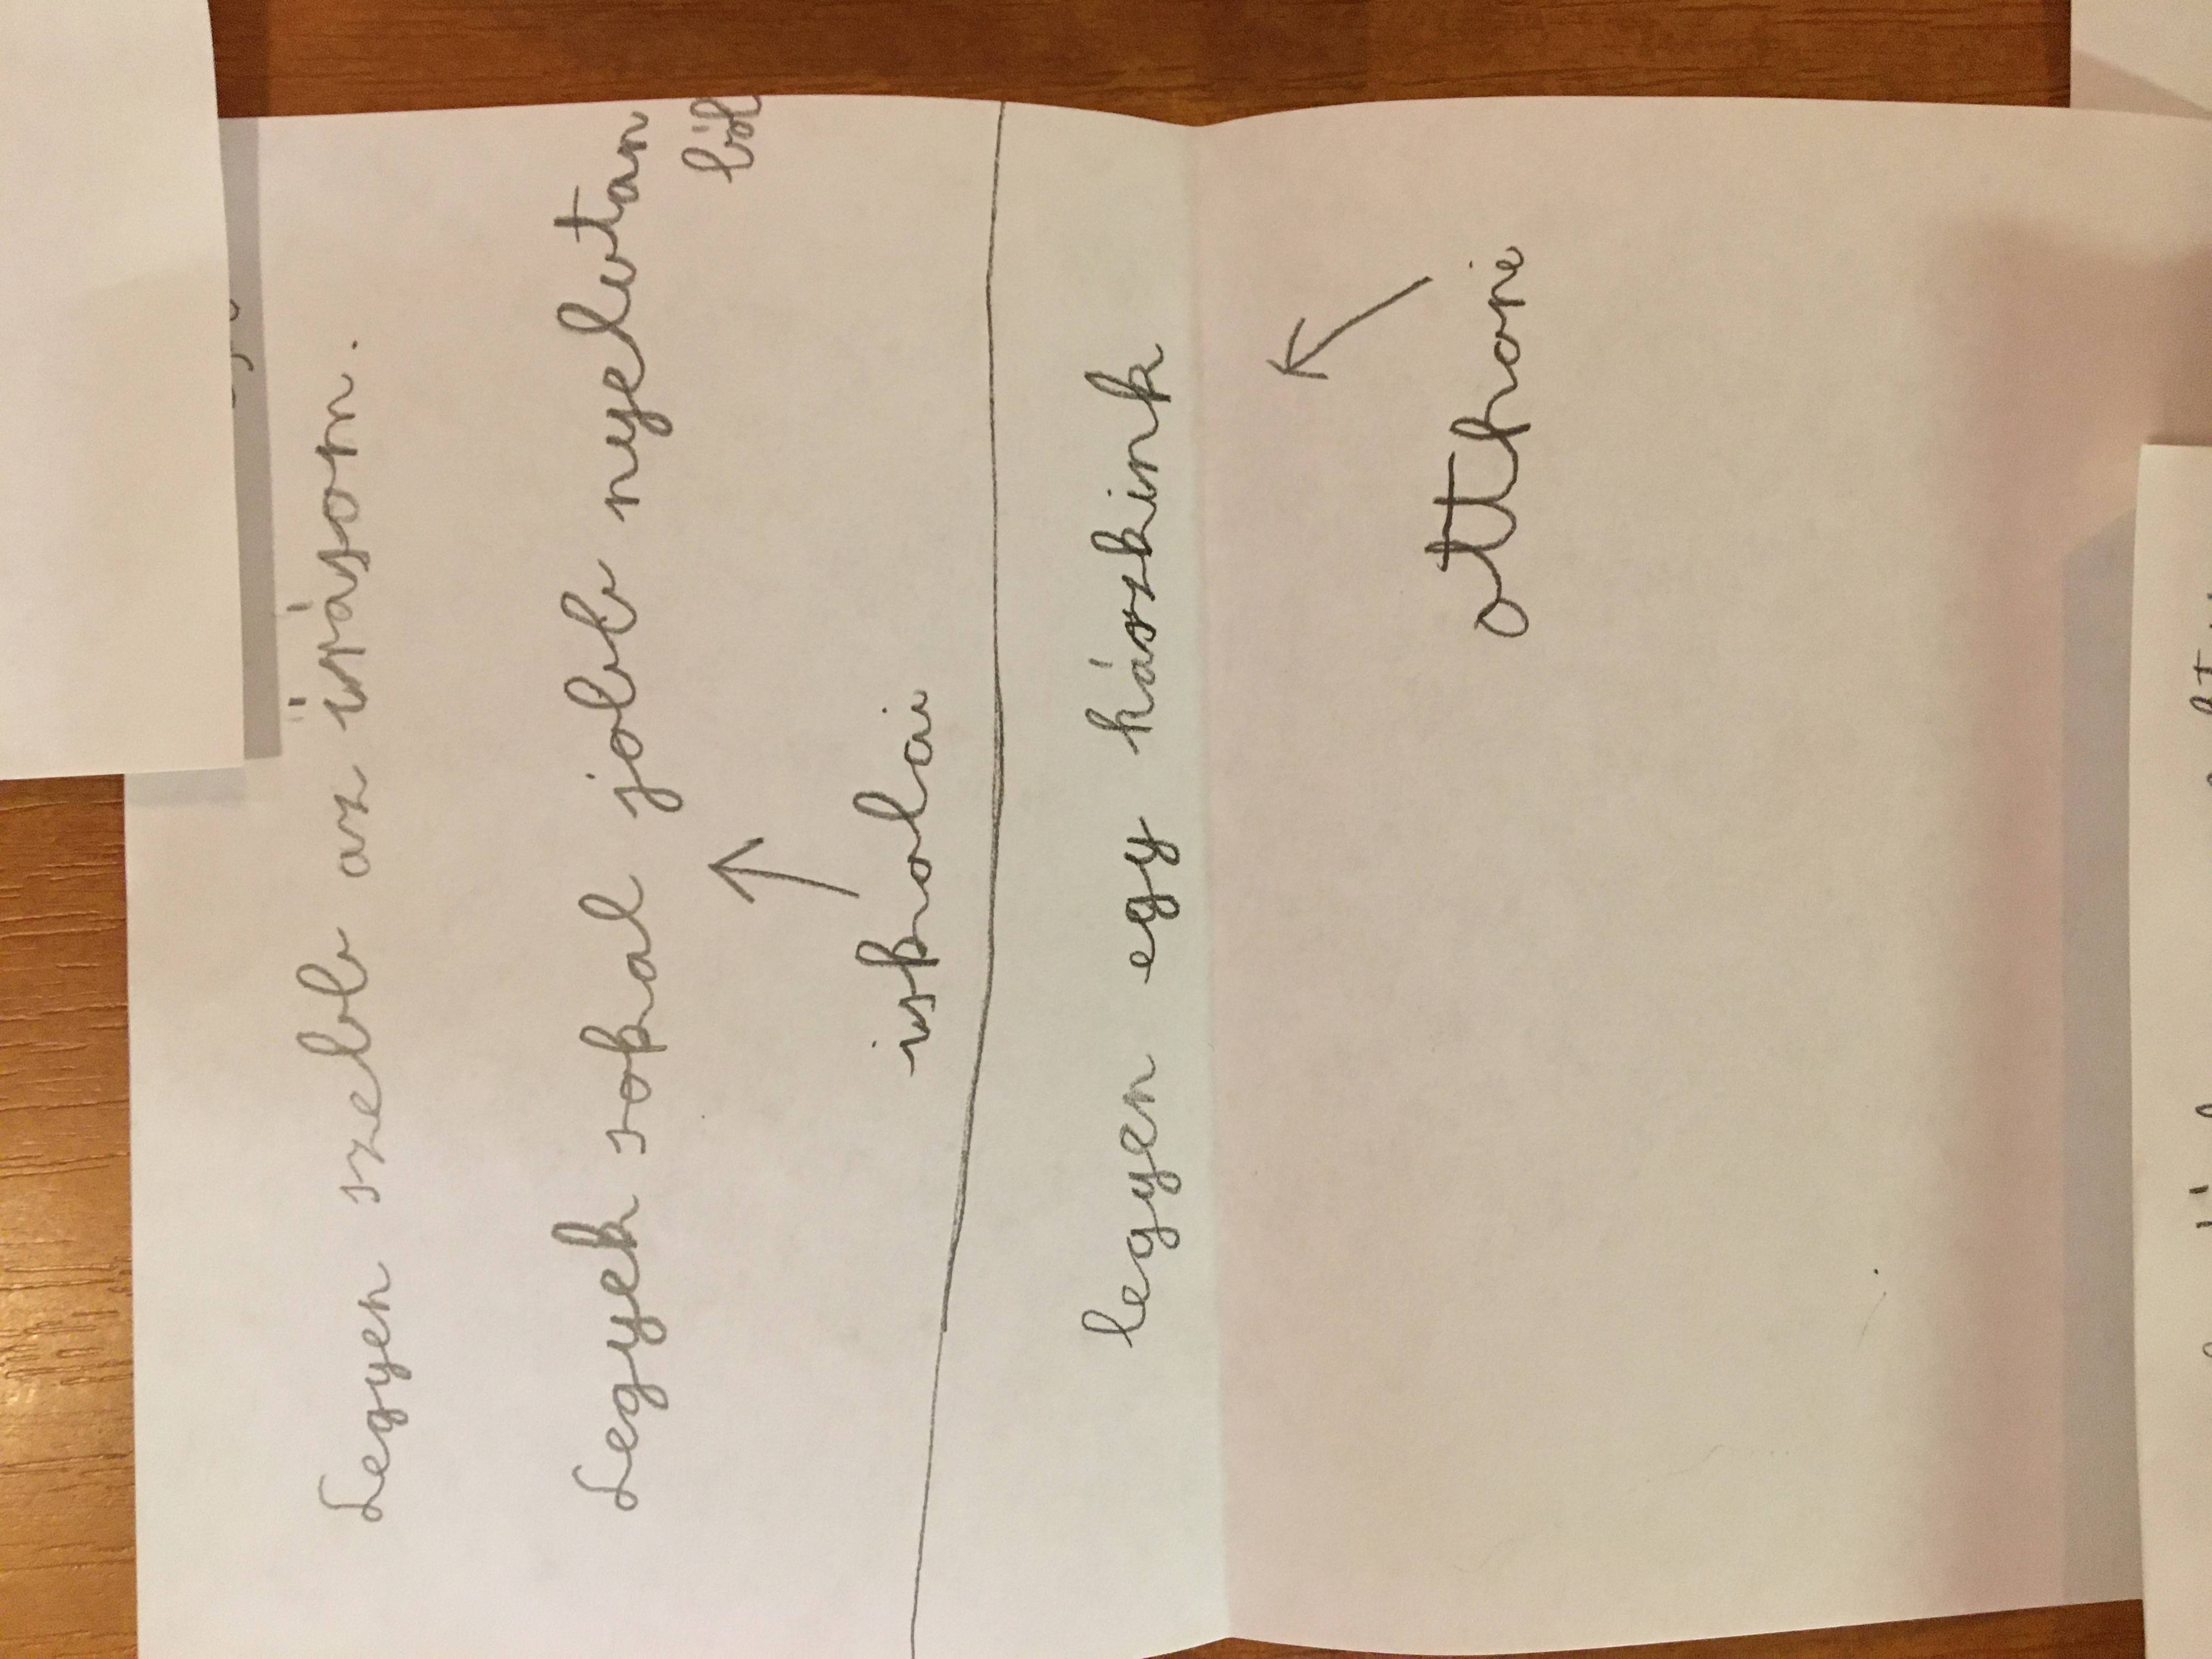 Legyen szebb az írásom.
Legyek sokal jobb nyelvtan
ból
iskolai
legyen egy hászkink
otthoni